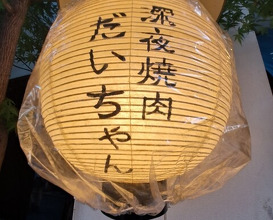 深夜焼肉
だいちゃん